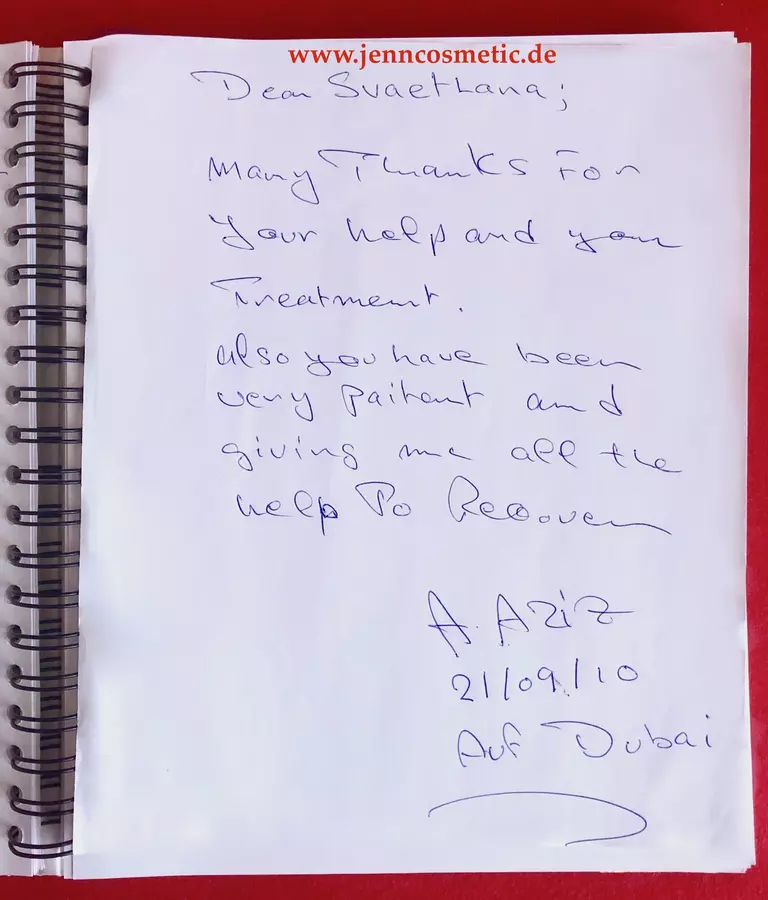 www.jenncosmetic.de
Dear Svaethana;
Many Thanks For
Your help and your
Treatment.
also you have been
very paitent and
giving me all the
help To Recover
A. AZiZ
21/09/10
Auf Dubai